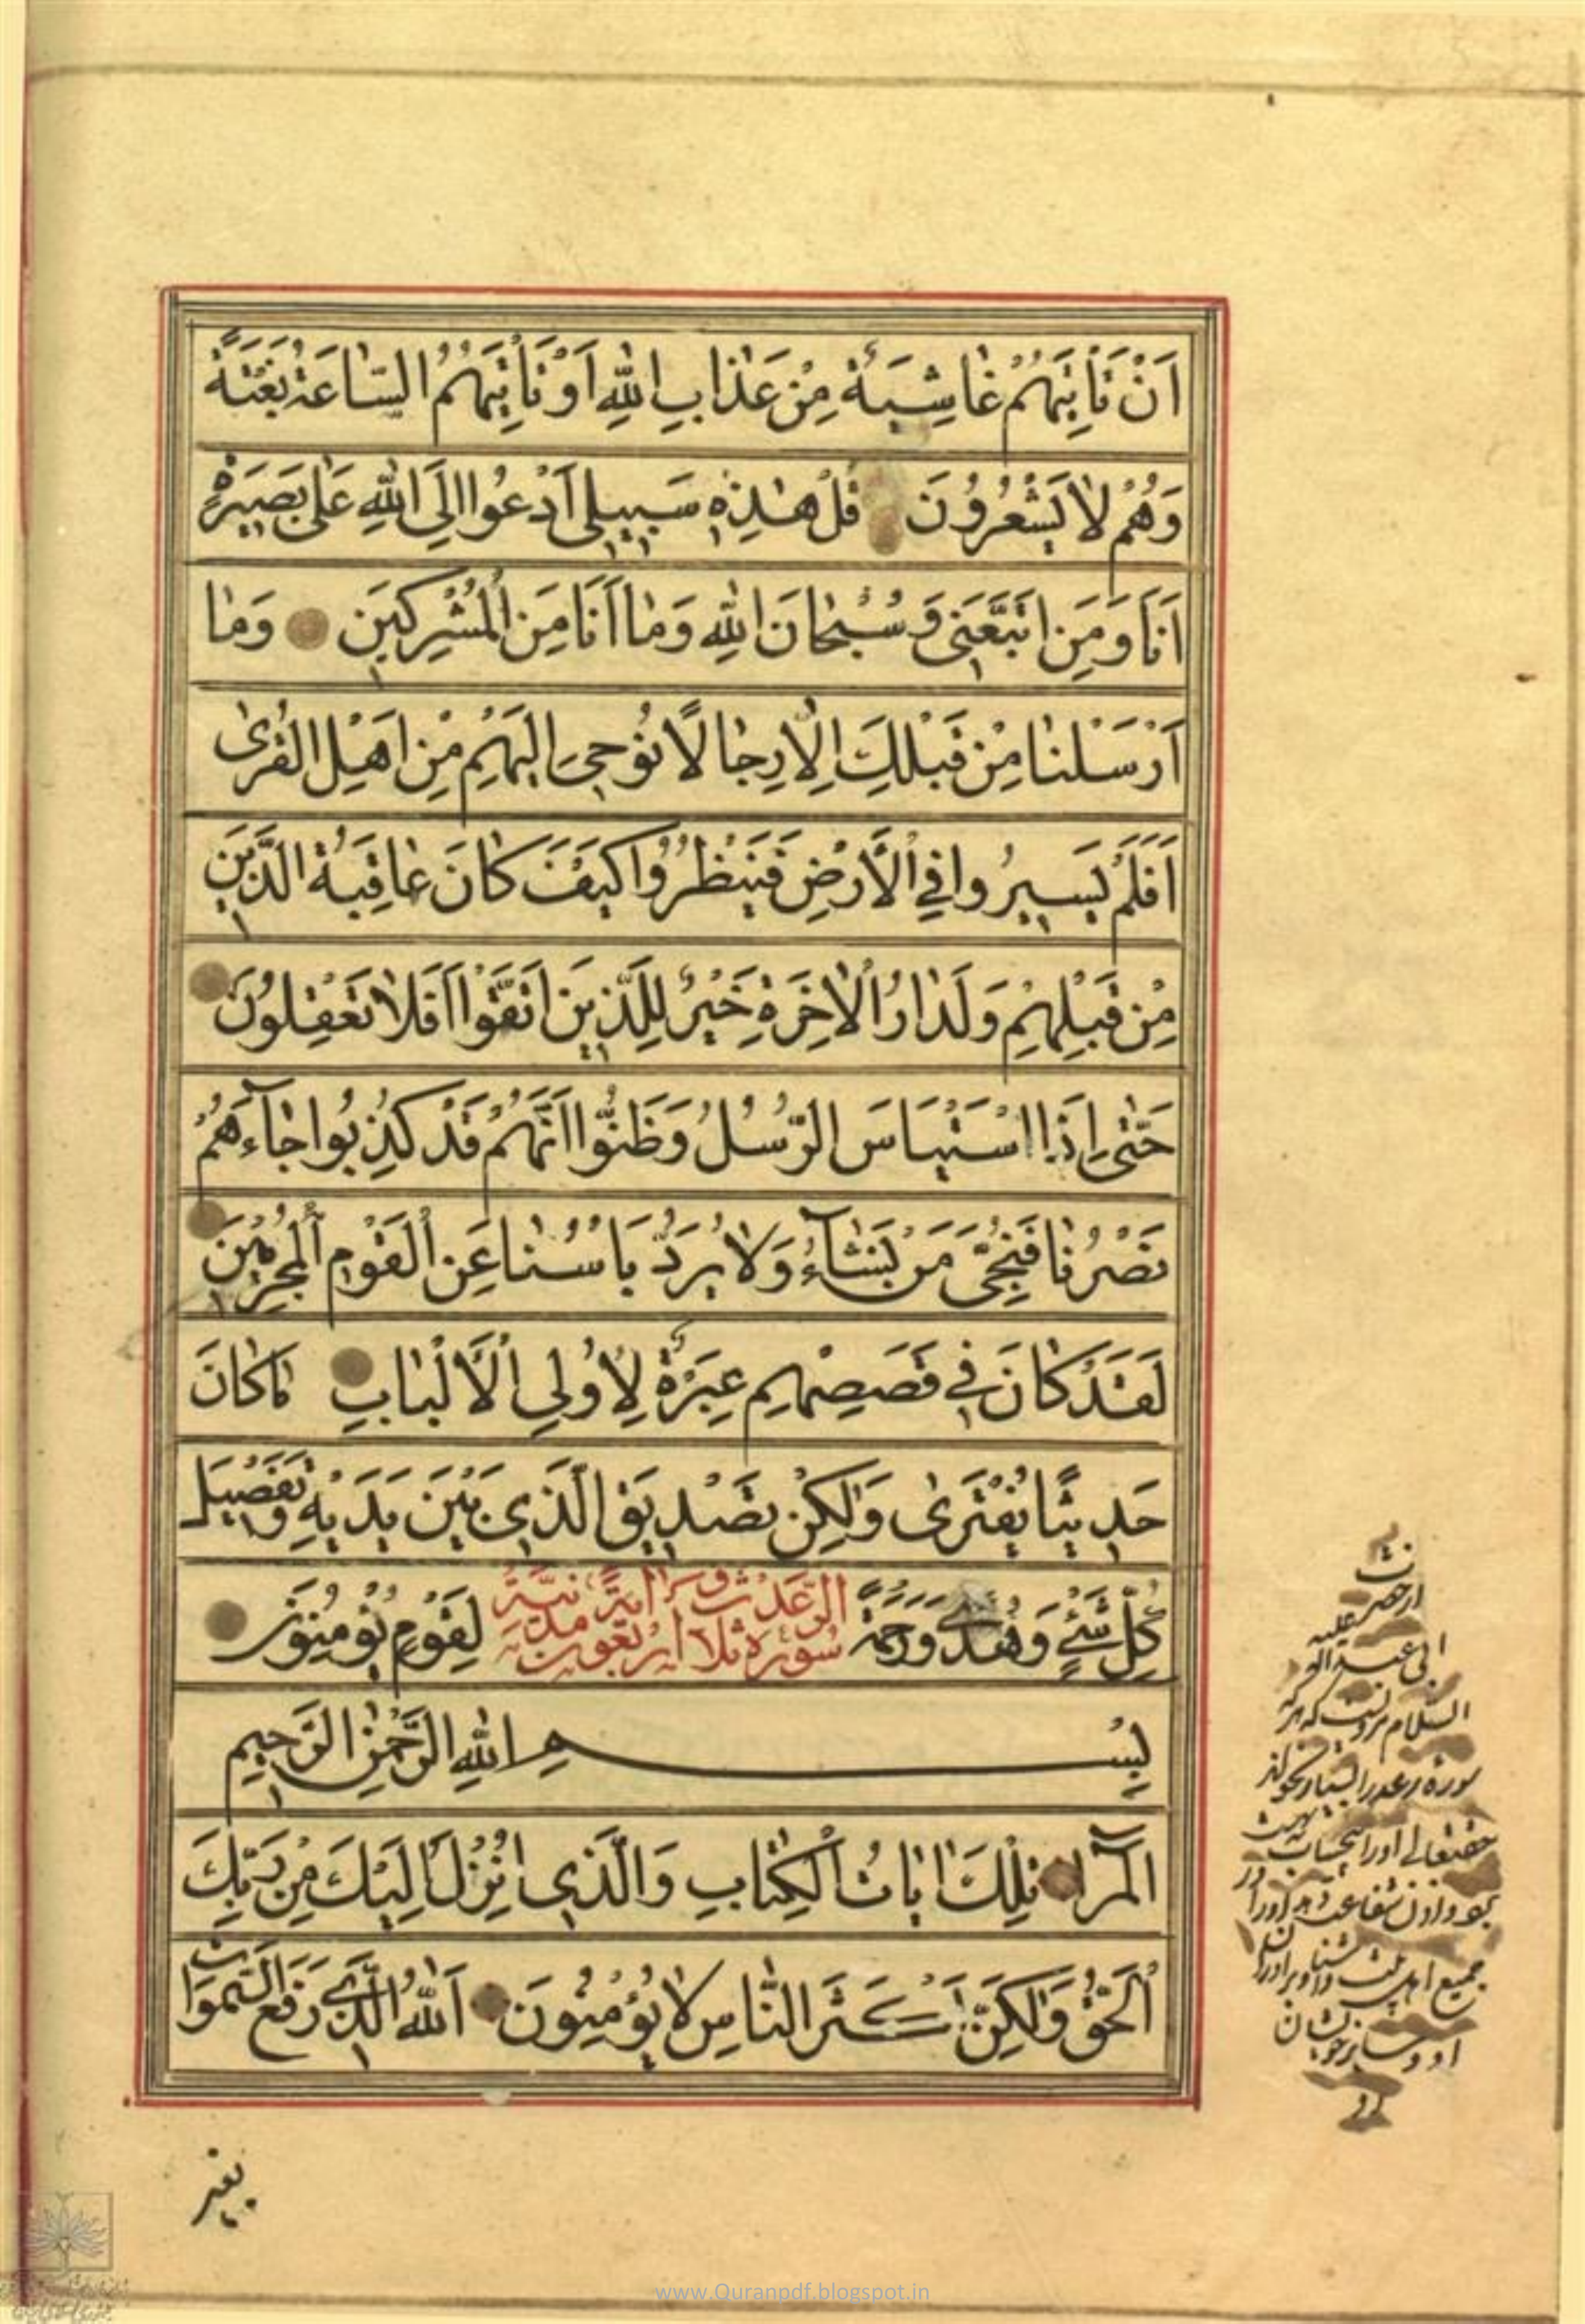 اَنْ تَأْتِيَهُمْ غَاشِيَةٌ مِنْ عَذَابِ اللهِ اَوْ تَأْتِيَهُمُ السَّاعَةُ بَغْتَةً
وَهُمْ لَا يَشْعُرُونَ قُلْ هٰذِهِ سَبِيلِي اَدْعُوا اِلَى اللهِ عَلٰى بَصِيرَةٍ
اَنَا وَمَنِ اتَّبَعَنِي وَسُبْحَانَ اللهِ وَمَا اَنَا مِنَ الْمُشْرِكِينَ وَمَا
اَرْسَلْنَا مِنْ قَبْلِكَ اِلَّا رِجَالًا نُوحِي اِلَيْهِمْ مِنْ اَهْلِ الْقُرٰى
اَفَلَمْ يَسِيرُوا فِي الْاَرْضِ فَيَنْظُرُوا كَيْفَ كَانَ عَاقِبَةُ الَّذِينَ
مِنْ قَبْلِهِمْ وَلَدَارُ الْاٰخِرَةِ خَيْرٌ لِلَّذِينَ اتَّقَوْا اَفَلَا تَعْقِلُونَ
حَتّٰى اِذَا اسْتَيْاَسَ الرُّسُلُ وَظَنُّوا اَنَّهُمْ قَدْ كُذِبُوا جَاءَهُمْ
نَصْرُنَا فَنُجِّيَ مَنْ نَشَاءُ وَلَا يُرَدُّ بَأْسُنَا عَنِ الْقَوْمِ الْمُجْرِمِينَ
لَقَدْ كَانَ فِي قَصَصِهِمْ عِبْرَةٌ لِاُولِي الْاَلْبَابِ مَا كَانَ
حَدِيثًا يُفْتَرٰى وَلٰكِنْ تَصْدِيقَ الَّذِي بَيْنَ يَدَيْهِ وَتَفْصِيلَ
كُلِّ شَيْءٍ وَهُدًى وَرَحْمَةً لِقَوْمٍ يُؤْمِنُونَ
سورة الرعد ثلاث واربعون اية مدنية
بِسْمِ اللهِ الرَّحْمٰنِ الرَّحِيمِ
الٓمٓرٰ تِلْكَ اٰيَاتُ الْكِتَابِ وَالَّذِي اُنْزِلَ اِلَيْكَ مِنْ رَبِّكَ
الْحَقُّ وَلٰكِنَّ اَكْثَرَ النَّاسِ لَا يُؤْمِنُونَ اَللهُ الَّذِي رَفَعَ السَّمٰوَاتِ
از حضرت
ابی عبد الله علیه
السلام مرویست که هر که
سوره رعد را بسیار بخواند
حقتعالی او را بیحساب به بهشت
جمیع اهل بیت
بغير
www.Quranpdf.blogspot.in